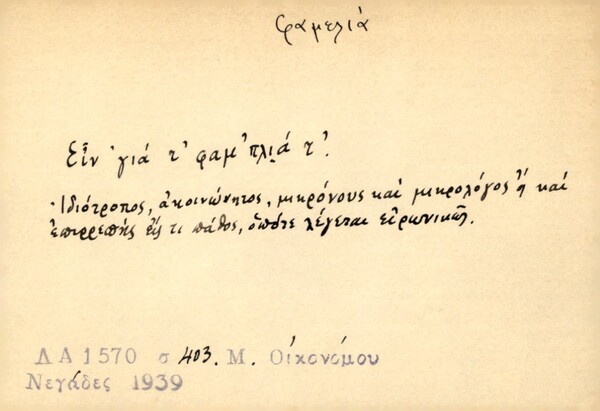 φαμελιά
Εἶν ᾽γιά τ᾽ φαμ᾽πλιά τ᾽.
Ἰδιότροπος, ἀκοινώνητος, μικρόνους καί μικρολόγος ἤ καί
ἐπιρρεπής εἴς τι πάθος, ὁπότε λέγεται εἰρωνικῶς.
ΛΑ 1570 σ 403. Μ. Οἰκονόμου
Νεγάδες 1939